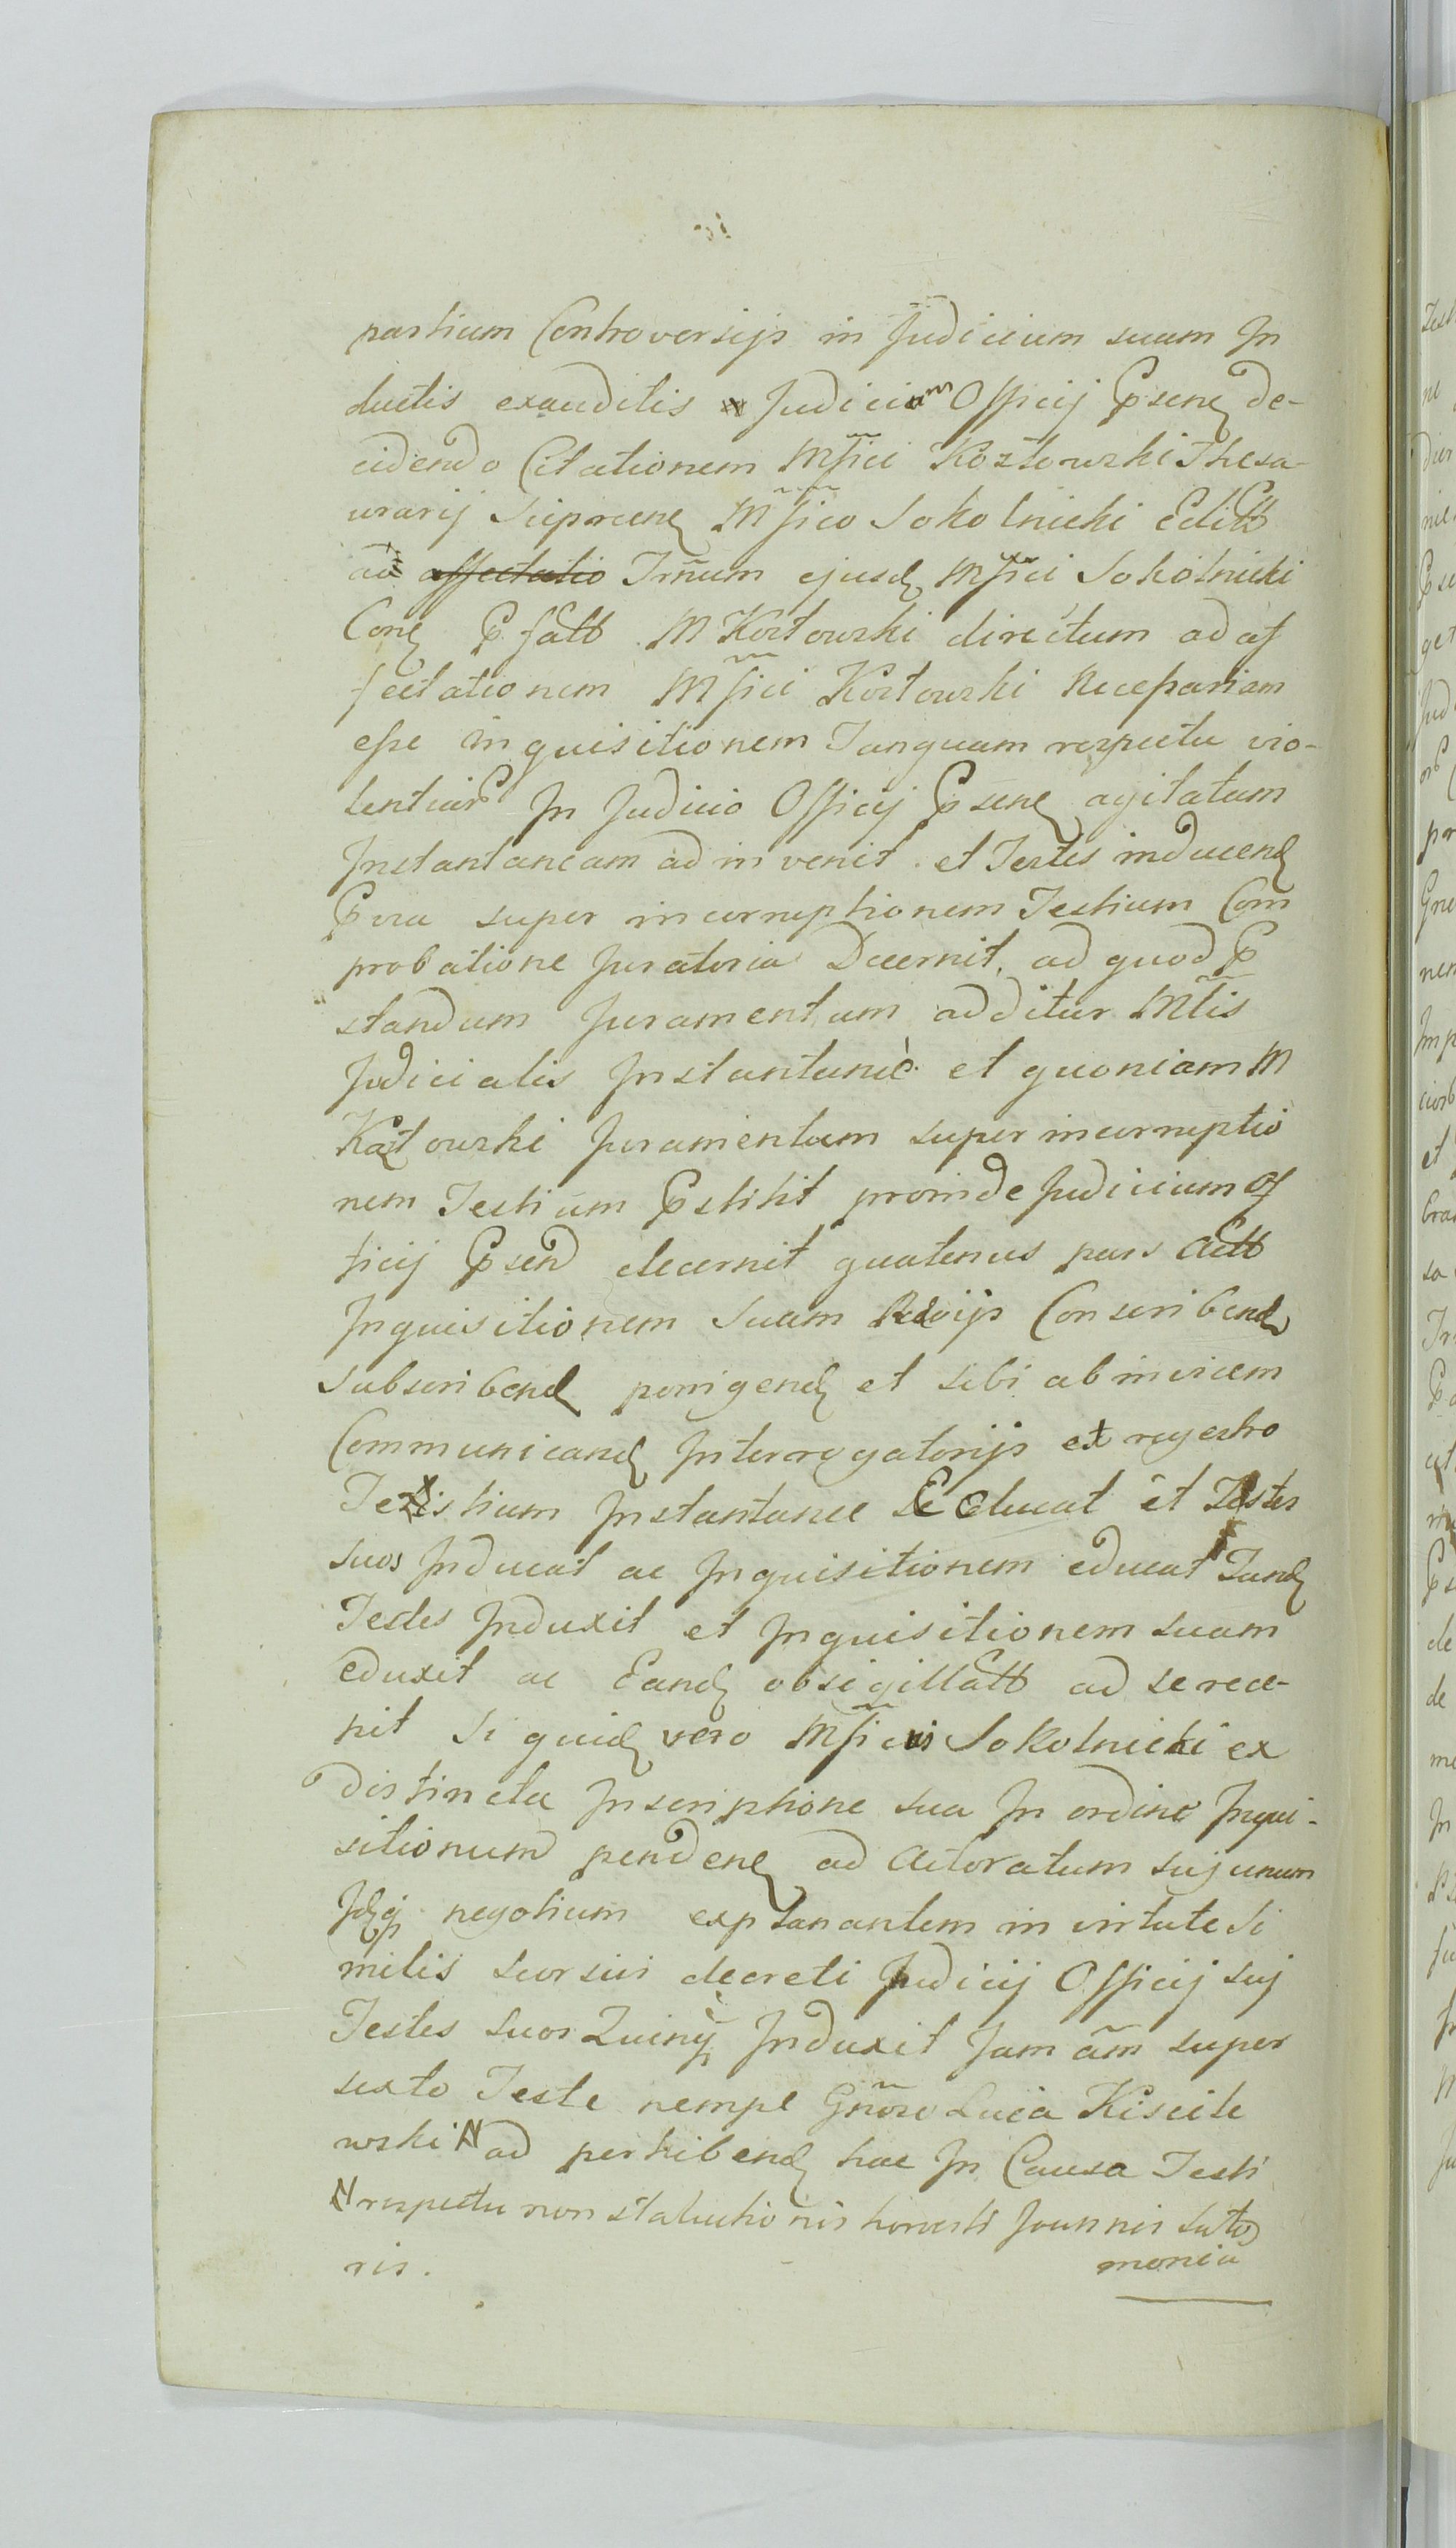 partium Controversijs in Judicium suum In
ductis exauditis Judicium Officij Psens de-
cidendo Citationem Mfici Kozlowski Thesa-
urarij Mfico Sokolnicki Editt
ad affectatio Trnum ejusd Mfici Sokolnicki
Cone Pfatt M Kozlowski directum ad af
fectationem Mfici Kozlowski
esse inquisitionem Tanquam respectu vio-
lentiar In Judicio Officij Psene agitatum
Instantaneam ad in venit et Testes inducend
Pvia super incorruptionem Testium Com
probatione Juratoria Decernit, ad quod P
standum Juramentum additur Mtis
Judicialis Instantanie et quoniam M
Kozlowski Juramentum super incorruptio
nem Testium Pstitit proinde Judicium Of
ficij Psend decernit quatenus pars Actt
Inquisitionem suam Conscribend
subscribend porrigend et sibi ab invicem
Communicand Interrogatorijs et regestro
Testium Instantanee Educat et Testes
suos Inducat ac Inquisitionem educat Tand
Testes Induxit et Inquisitionem suam
eduxit ac Eand obsigillatt ad se rece-
pit Si quid vero Mficus Sokolnicki ex
distincta Inscriptione sua In ordine Inqui-
sitionum pendene ad Actoratum suj unum
Idq negotium explanantem in virtute Si
milis seorsivi decreti Judicij Officij suj
Testes suos Quinq Induxit Jam am super
sexto Teste nempe Gnoso Luca Kisciele
wski N ad perhibend hac In Causa Testi
N respectu non statuitionis honesti Joannis Suto
ris.
monia